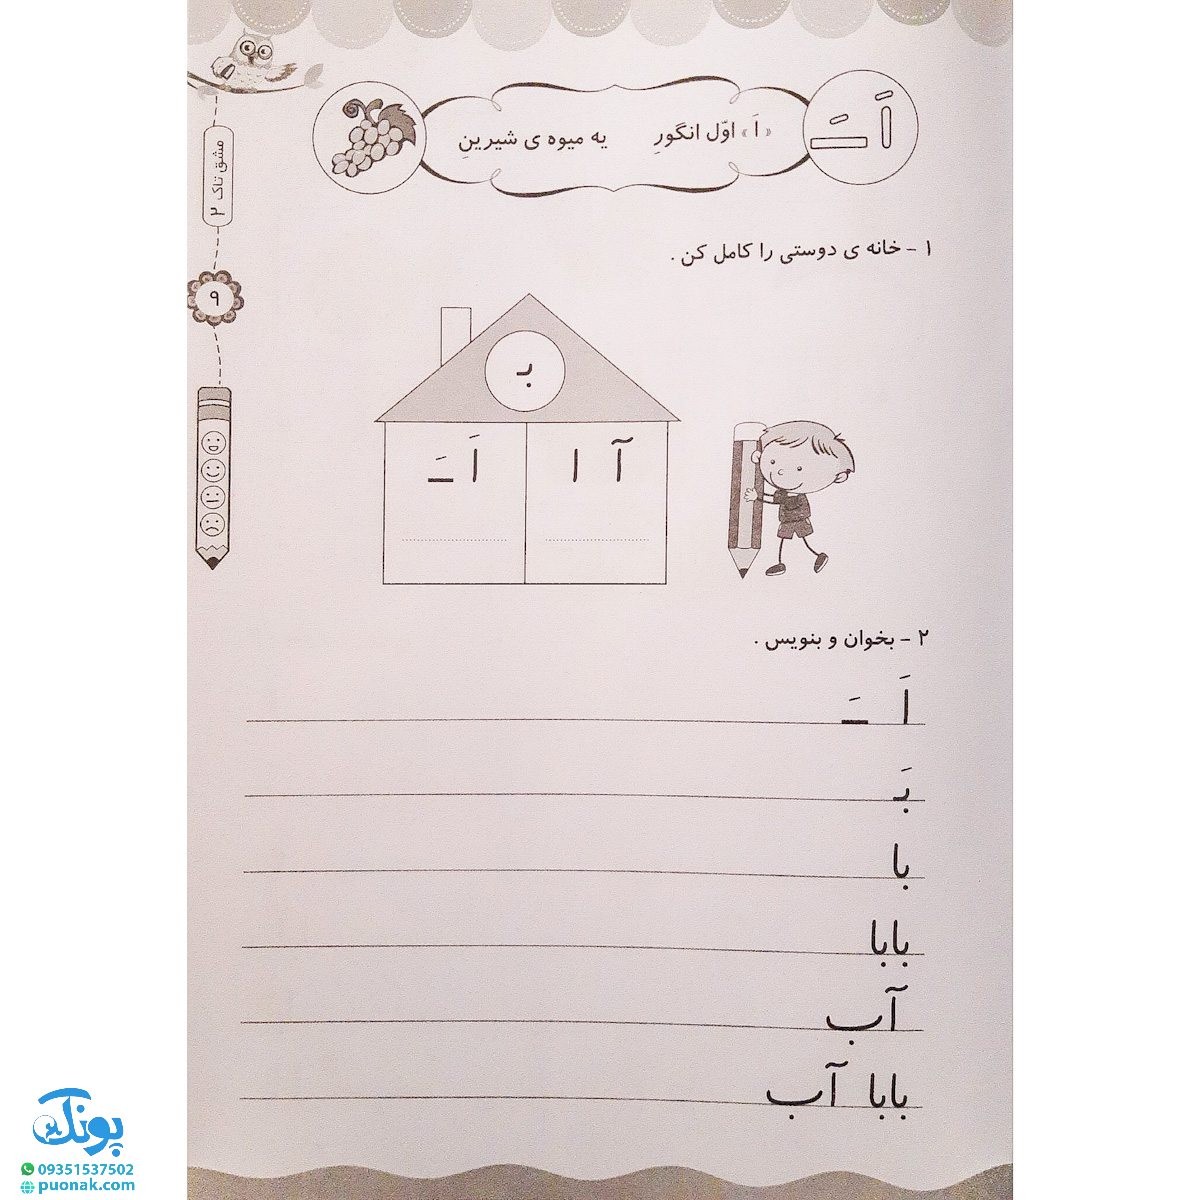 اَ ـَ
« اَ » اوّل انگورِ یه میوه ی شیرینِ
مشق تاک ۲
۹
۱ - خانه ی دوستی را کامل کن .
بـ
آ ا
اَ ـَ
۲ - بخوان و بنویس .
اَ ـَ
بـَ
با
بابا
آب
بابا آب
پونک
09351537502
puonak.com